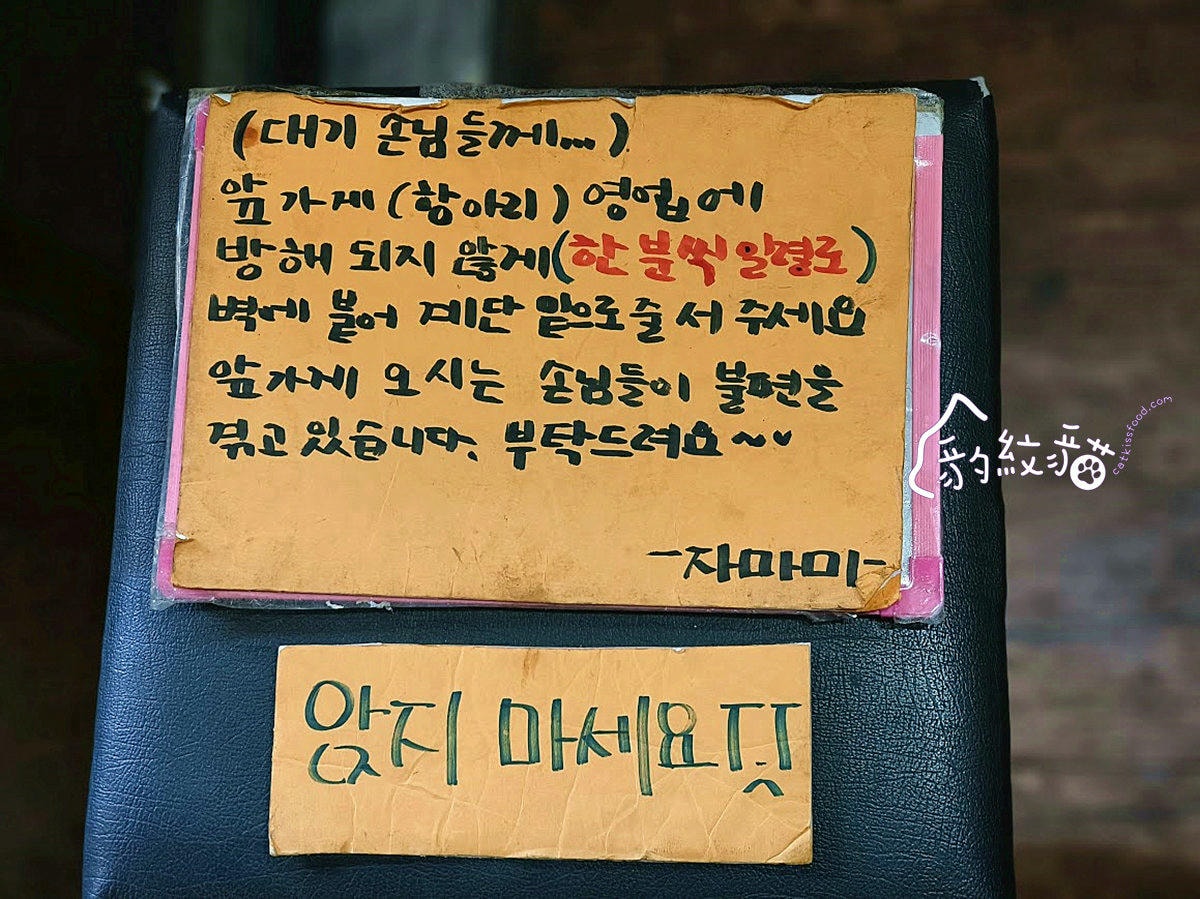 (대기 손님들께...)
앞가게(항아리) 영업에
방해 되지 않게(한 분씩 일렬로)
벽에 붙어 계단 밑으로 줄 서 주세요
앞가게 오시는 손님들이 불편을
겪고 있습니다. 부탁드려요~♥
-자마마-
앉지 마세요 ㅠㅠ
豹紋貓
catkissfood.com